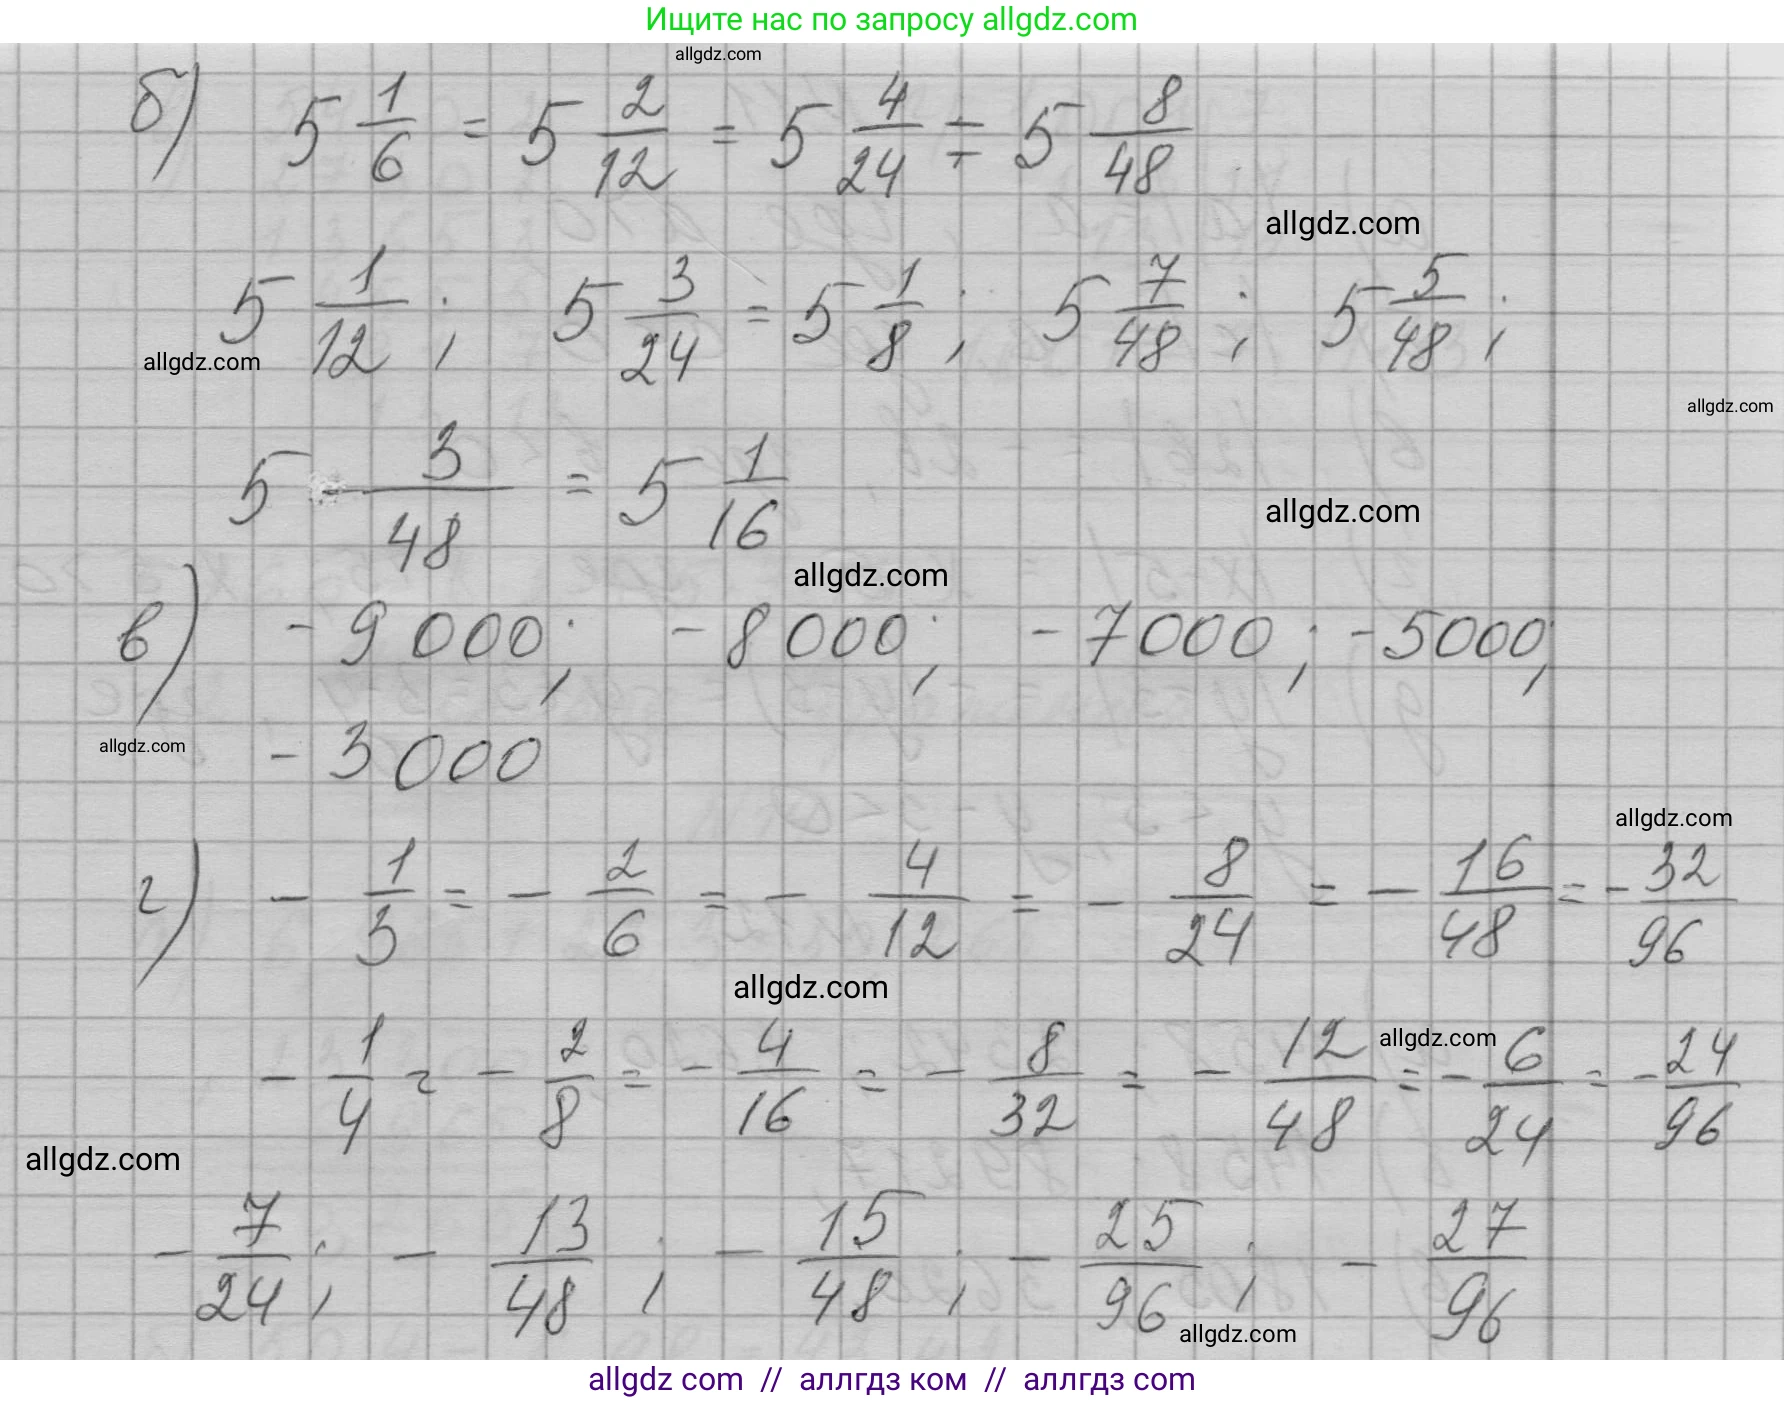 Ищите нас по запросу allgdz.com
allgdz.com
б) 5 1/6 = 5 2/12 = 5 4/24 = 5 8/48
allgdz.com
5 1/12; 5 3/24 = 5 1/8; 5 7/48; 5 5/48;
allgdz.com
allgdz.com
5 3/48 = 5 1/16
allgdz.com
allgdz.com
в) -9000; -8000; -7000; -5000;
-3000
allgdz.com
allgdz.com
г) - 1/3 = - 2/6 = - 4/12 = - 8/24 = - 16/48 = - 32/96
allgdz.com
allgdz.com
- 1/4 = - 2/8 = - 4/16 = - 8/32 = - 12/48 = - 6/24 = - 24/96
allgdz.com
- 7/24; - 13/48; - 15/48; - 25/96; - 27/96
allgdz.com
allgdz com // аллгдз ком // аллгдз com